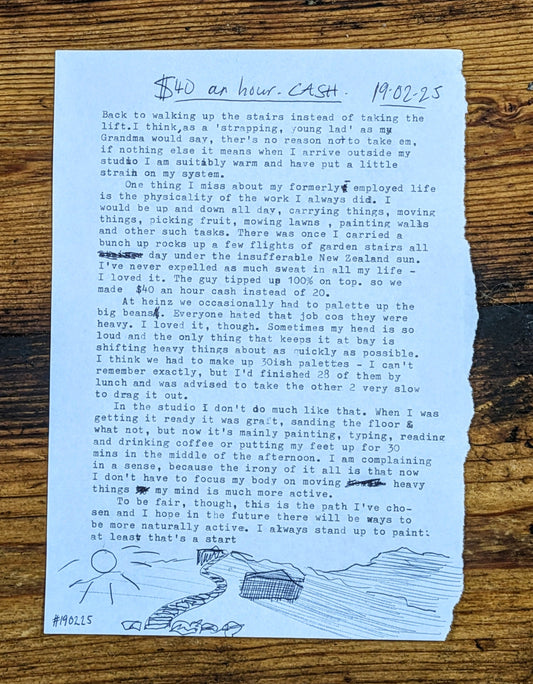 $40 an hour - CASH. 19-02-25
Back to walking up the stairs instead of taking the
lift. I think, as a 'strapping, young lad' as my
Grandma would say, ther's no reason not to take em,
if nothing else it means when I arrive outside my
studio I am suitably warm and have put a little
strain on my system.
One thing I miss about my formerly employed life
is the physicality of the work I always did. I
would be up and down all day, carrying things, moving
things, picking fruit, mowing lawns , painting walls
and other such tasks. There was once I carried a
bunch up rocks up a few flights of garden stairs all
day under the insufferable New Zealand sun.
I've never expelled as much sweat in all my life -
I loved it. The guy tipped up 100% on top. so we
made $40 an hour cash instead of 20.
At heinz we occasionally had to palette up the
big beans. Everyone hated that job cos they were
heavy. I loved it, though. Sometimes my head is so
loud and the only thing that keeps it at bay is
shifting heavy things about as quickly as possible.
I think we had to make up 30ish palettes - I can't
remember exactly, but I'd finished 28 of them by
lunch and was advised to take the other 2 very slow
to drag it out.
In the studio I don't do much like that. When I was
getting it ready it was graft, sanding the floor &
what not, but now it's mainly painting, typing, reading
and drinking coffee or putting my feet up for 30
mins in the middle of the afternoon. I am complaining
in a sense, because the irony of it all is that now
I don't have to focus my body on moving heavy
things my mind is much more active.
To be fair, though, this is the path I've cho-
sen and I hope in the future there will be ways to
be more naturally active. I always stand up to paint:
at least that's a start
#190225